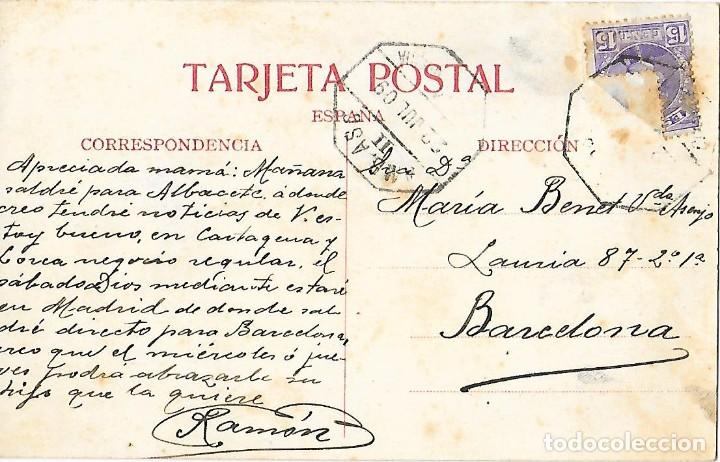 TARJETA POSTAL
ESPAÑA
CORRESPONDENCIA
Apreciada mamá: Mañana
saldré para Albacete, á donde
creo tendré noticias de V. es-
toy bueno, en Cartagena y
Lorca negocio regular, el
sábado Dios mediante estaré
en Madrid de donde sal-
dré directo para Barcelona,
creo que el miércoles ó jue-
ves podrá abrazarle su
hijo que la quiere
Ramón
DIRECCIÓN
Sra Dª
María Benet Vda Asenjo
Lauria 87-2º 1ª
Barcelona
15 CENTS 15
JUL 09
todocoleccion.net